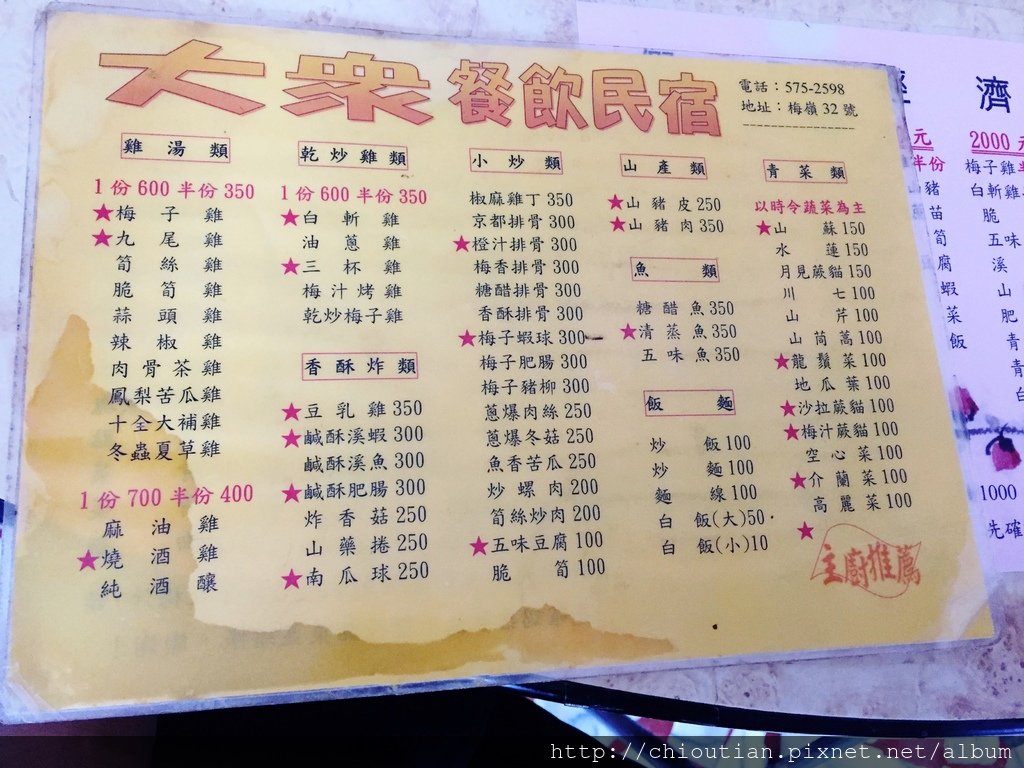 大衆餐飲民宿
電話：575-2598
地址：梅嶺 32 號
雞湯類
1份600 半份350
★梅子雞
★九尾雞
筍絲雞
脆筍雞
蒜頭雞
辣椒雞
肉骨茶雞
鳳梨苦瓜雞
十全大補雞
冬蟲夏草雞
1份700 半份400
麻油雞
★燒酒雞
純酒釀
乾炒雞類
1份600 半份350
★白斬雞
油蔥雞
★三杯雞
梅汁烤雞
乾炒梅子雞
香酥炸類
★豆乳雞350
★鹹酥溪蝦300
鹹酥溪魚300
★鹹酥肥腸300
炸香菇250
山藥捲250
★南瓜球250
小炒類
椒麻雞丁350
京都排骨300
★橙汁排骨300
梅香排骨300
糖醋排骨300
香酥排骨300
★梅子蝦球300
梅子肥腸300
梅子豬柳300
蔥爆肉絲250
蔥爆冬菇250
魚香苦瓜250
炒螺肉200
筍絲炒肉200
★五味豆腐100
脆筍100
山產類
★山豬皮250
★山豬肉350
魚類
糖醋魚350
★清蒸魚350
五味魚350
飯麵
炒飯100
炒麵100
麵線100
白飯(大)50
白飯(小)10
青菜類
以時令蔬菜為主
★山蘇150
水蓮150
月見蕨貓150
川七100
山芹100
山茼萵100
★龍鬚菜100
地瓜葉100
★沙拉蕨貓100
★梅汁蕨貓100
空心菜100
★介蘭菜100
高麗菜100
★主廚推薦
濟
元
半份
豬
苗
筍
腐
蝦
菜
飯
2000 元
梅子雞半
白斬雞
脆
五味
溪
山
肥
青
青
白
1000
先確
http://chioutian.pixnet.net/album